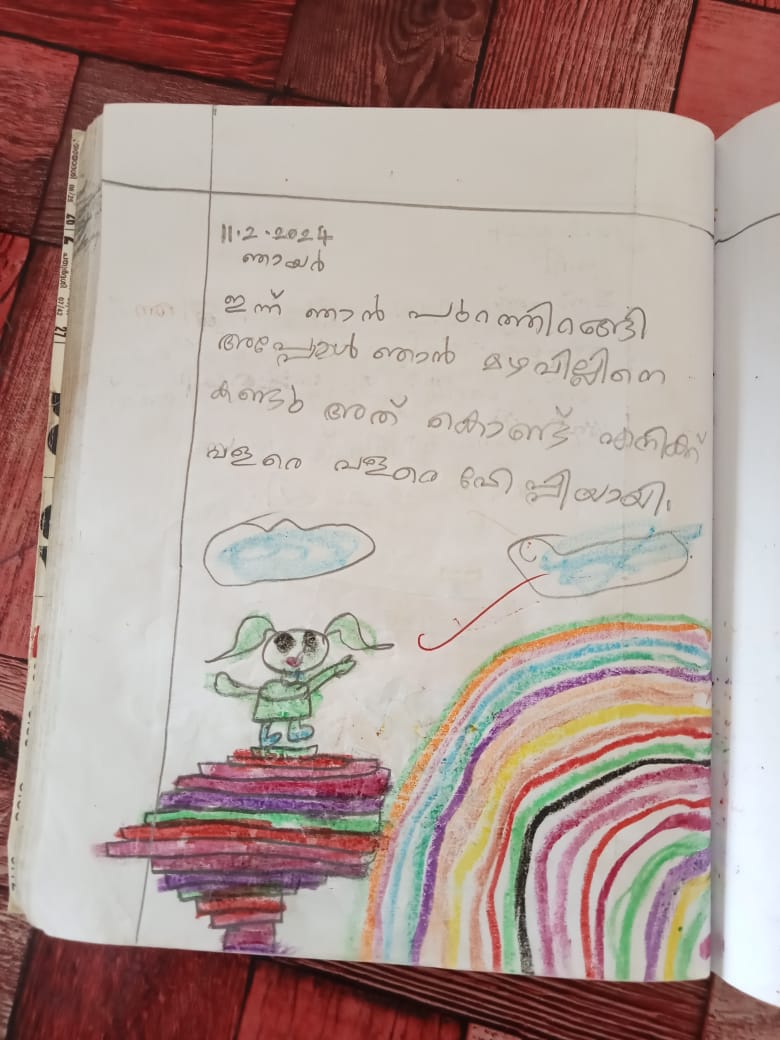 11.2.2024
ഞായർ
ഇന്ന് ഞാൻ പുറത്തിറങ്ങി
അപ്പോൾ ഞാൻ മഴവില്ലിനെ
കണ്ടു അത് കൊണ്ട് എനിക്ക്
വളരെ വളരെ ഹേപ്പിയായി.